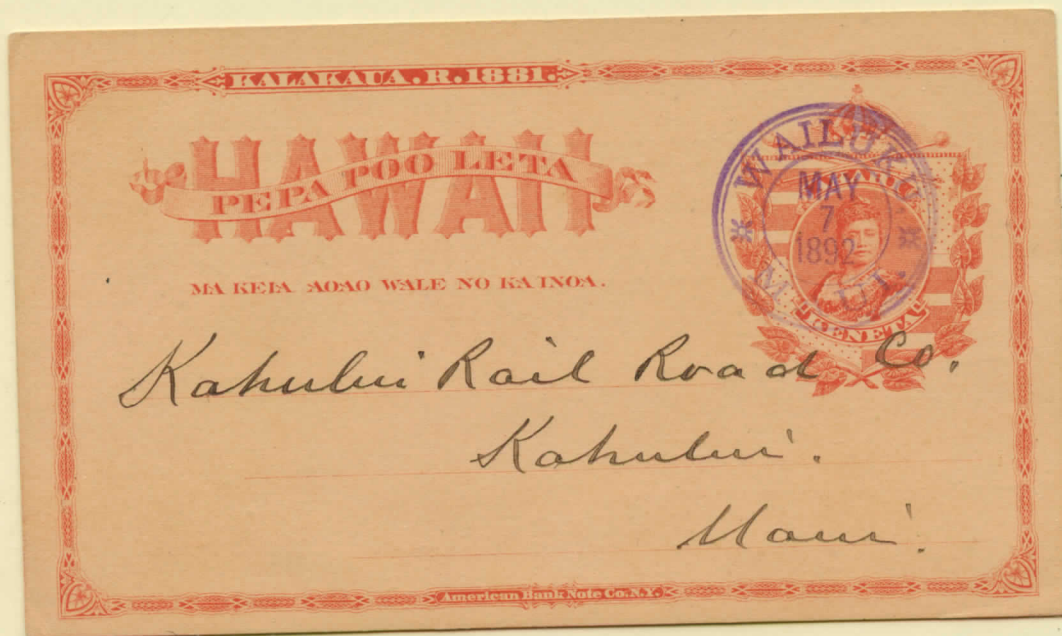 KALAKAUA. R. 1881.
HAWAII
PEPA POO LETA
MA KEIA AOAO WALE NO KA INOA.
WAILUKU
MAY
7
1892
MAUI
HAWAII
KENETA
Kahului Rail Road Co.
Kahului.
Maui.
American Bank Note Co. N.Y.